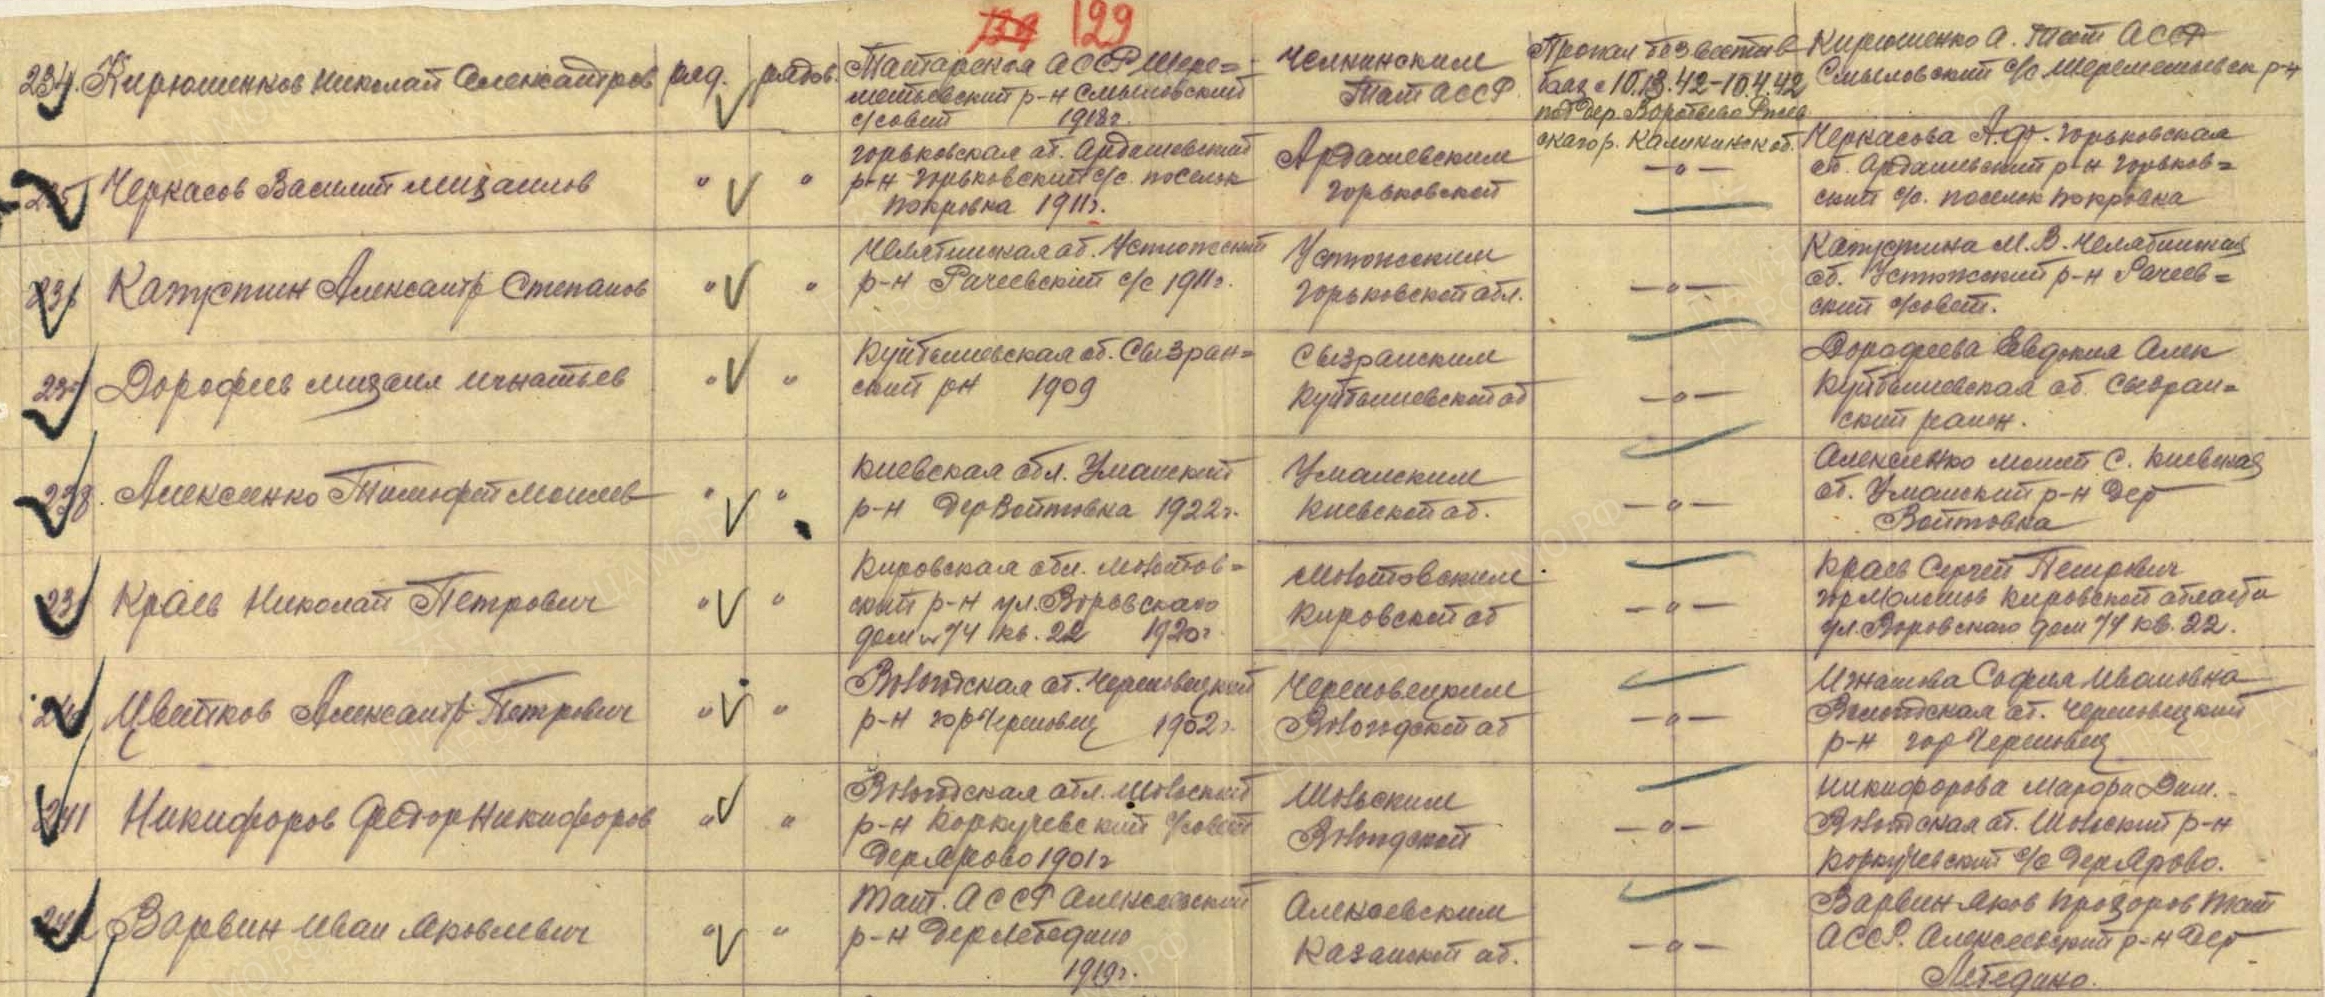 129
234. Кирюшенков Николай Александров ряд. рядов. Татарская АССР Шере=
метьевский р-н Смыловский
с/совет 1918г.
Челнинским
Тат АССР
Пропал без вести в
10.13.42-10.4.42
под дер. Воротьево Ржев
ского р. Калининск об.
Кирюшенко А. Тат АССР
Смыловский с/с Шереметьевск р-н
235 Черкасов Василий Михаилов " " Горьковская об. Ардашевский
р-н Горьковский с/с. поселок
Покровка 1911г.
Ардашевским
Горьковской
—"—
Черкасова А.Ф. Горьковская
об. Ардашевский р-н Горьков=
ский с/с. поселок Покровка
236 Капустин Александр Степанов " " Челябинская об. Устюжский
р-н Рачеевский с/с 1911г.
Устюжским
Горьковской обл.
—"—
Капустина М.В. Челябинская
об. Устюжский р-н Рачеев=
ский с/совет.
237 Дорофеев Михаил Игнатьев " " Куйбышевская об. Сызран=
ский рн 1909
Сызранским
Куйбышевской об
—"—
Дорофеева Евдокия Алек
Куйбышевская об. Сызран=
ский район.
238. Алексеенко Тимофей Моисеев " " Киевская обл. Уманский
р-н Дер Войтовка 1922г.
Уманским
Киевской об.
—"—
Алексеенко Моисей С. Киевская
об. Уманский р-н Дер
Войтовка
239 Краев Николай Петрович " " Кировская обл. Молотов=
ский р-н ул. Воровского
дом № 74 кв. 22 1920г.
Молотовским
Кировской об
—"—
Краев Сергей Петрович
гор Молотов Кировской области
ул. Воровского дом 74 кв. 22.
240 Цветков Александр Петрович " " Вологодская об. Череповецкий
р-н гор Череповец 1902г.
Череповецким
Вологодской об
—"—
Игнатова София Ивановна
Вологодская об. Череповецкий
р-н гор Череповец
241 Никифоров Федор Никифоров " " Вологодская обл. Шольский
р-н Коркучевский с/совет
Дер Ярово 1901г
Шольским
Вологодской
—"—
Никифорова Марфа Дим.
Вологодская об. Шольский р-н
Коркучевский с/с Дер Ярово.
242 Варвин Иван Яковлевич " " Тат. АССР Алексеевский
р-н Дер Лебедино
1919г.
Алексеевским
Казанской об.
—"—
Варвин Яков Прохоров Тат
АССР. Алексеевский р-н Дер
Лебедино.